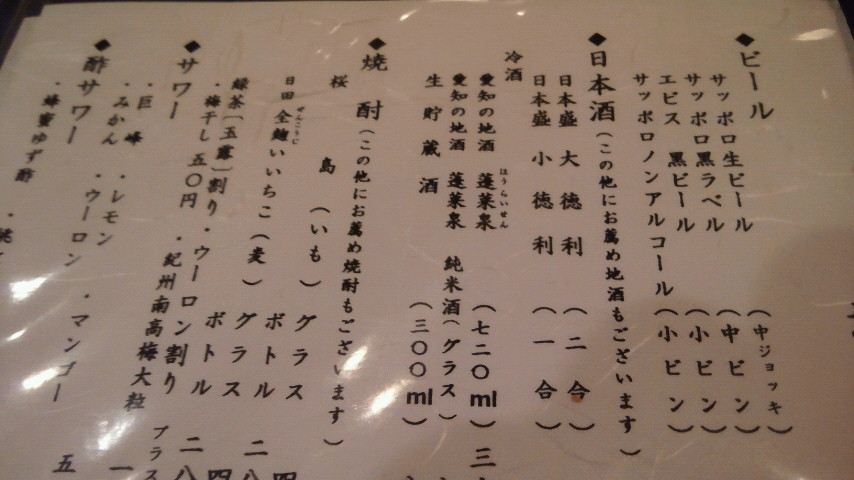 ◆ビール
サッポロ生ビール (中ジョッキ)
サッポロ黒ラベル (中ビン)
エビス 黒ビール (小ビン)
サッポロノンアルコール (小ビン)
◆日本酒(この他にお薦め地酒もございます)
日本盛 大徳利 (二合)
日本盛 小徳利 (一合)
冷酒
愛知の地酒 蓬莱泉 (七二〇ml) 三
ほうらいせん
愛知の地酒 蓬莱泉 純米酒(グラス)
生貯蔵酒 (三〇〇ml)
◆焼酎(この他にお薦め焼酎もございます)
桜島 (いも) グラス 四
ボトル 二八
日田全麹いいちこ (麦) グラス 四
ぜんこうじ
ボトル 二八
緑茶[玉露]割り ・ウーロン割り
・梅干し 五〇円 ・紀州南高梅大粒 プラス 一
◆サワー
・巨峰 ・レモン
・みかん ・ウーロン ・マンゴー 五
◆酢サワー
・蜂蜜ゆず酢